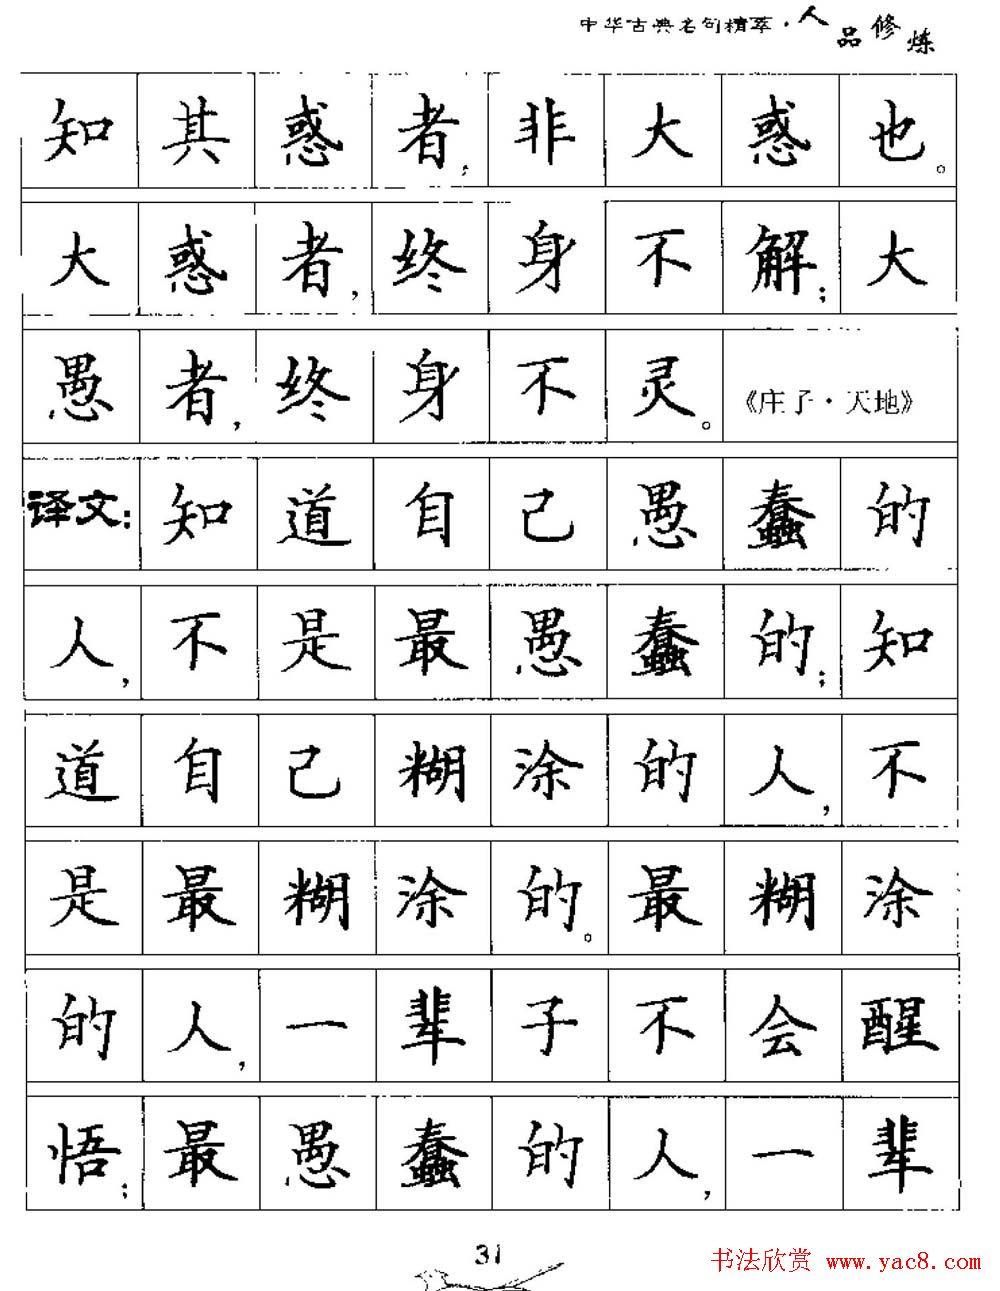 中华古典名句精萃·人品修炼
知其惑者，非大惑也。
大惑者，终身不解；大
愚者，终身不灵。《庄子·天地》
译文：知道自己愚蠢的
人，不是最愚蠢的；知
道自己糊涂的人，不
是最糊涂的。最糊涂
的人，一辈子不会醒
悟；最愚蠢的人，一辈
31
书法欣赏 www.yac8.com